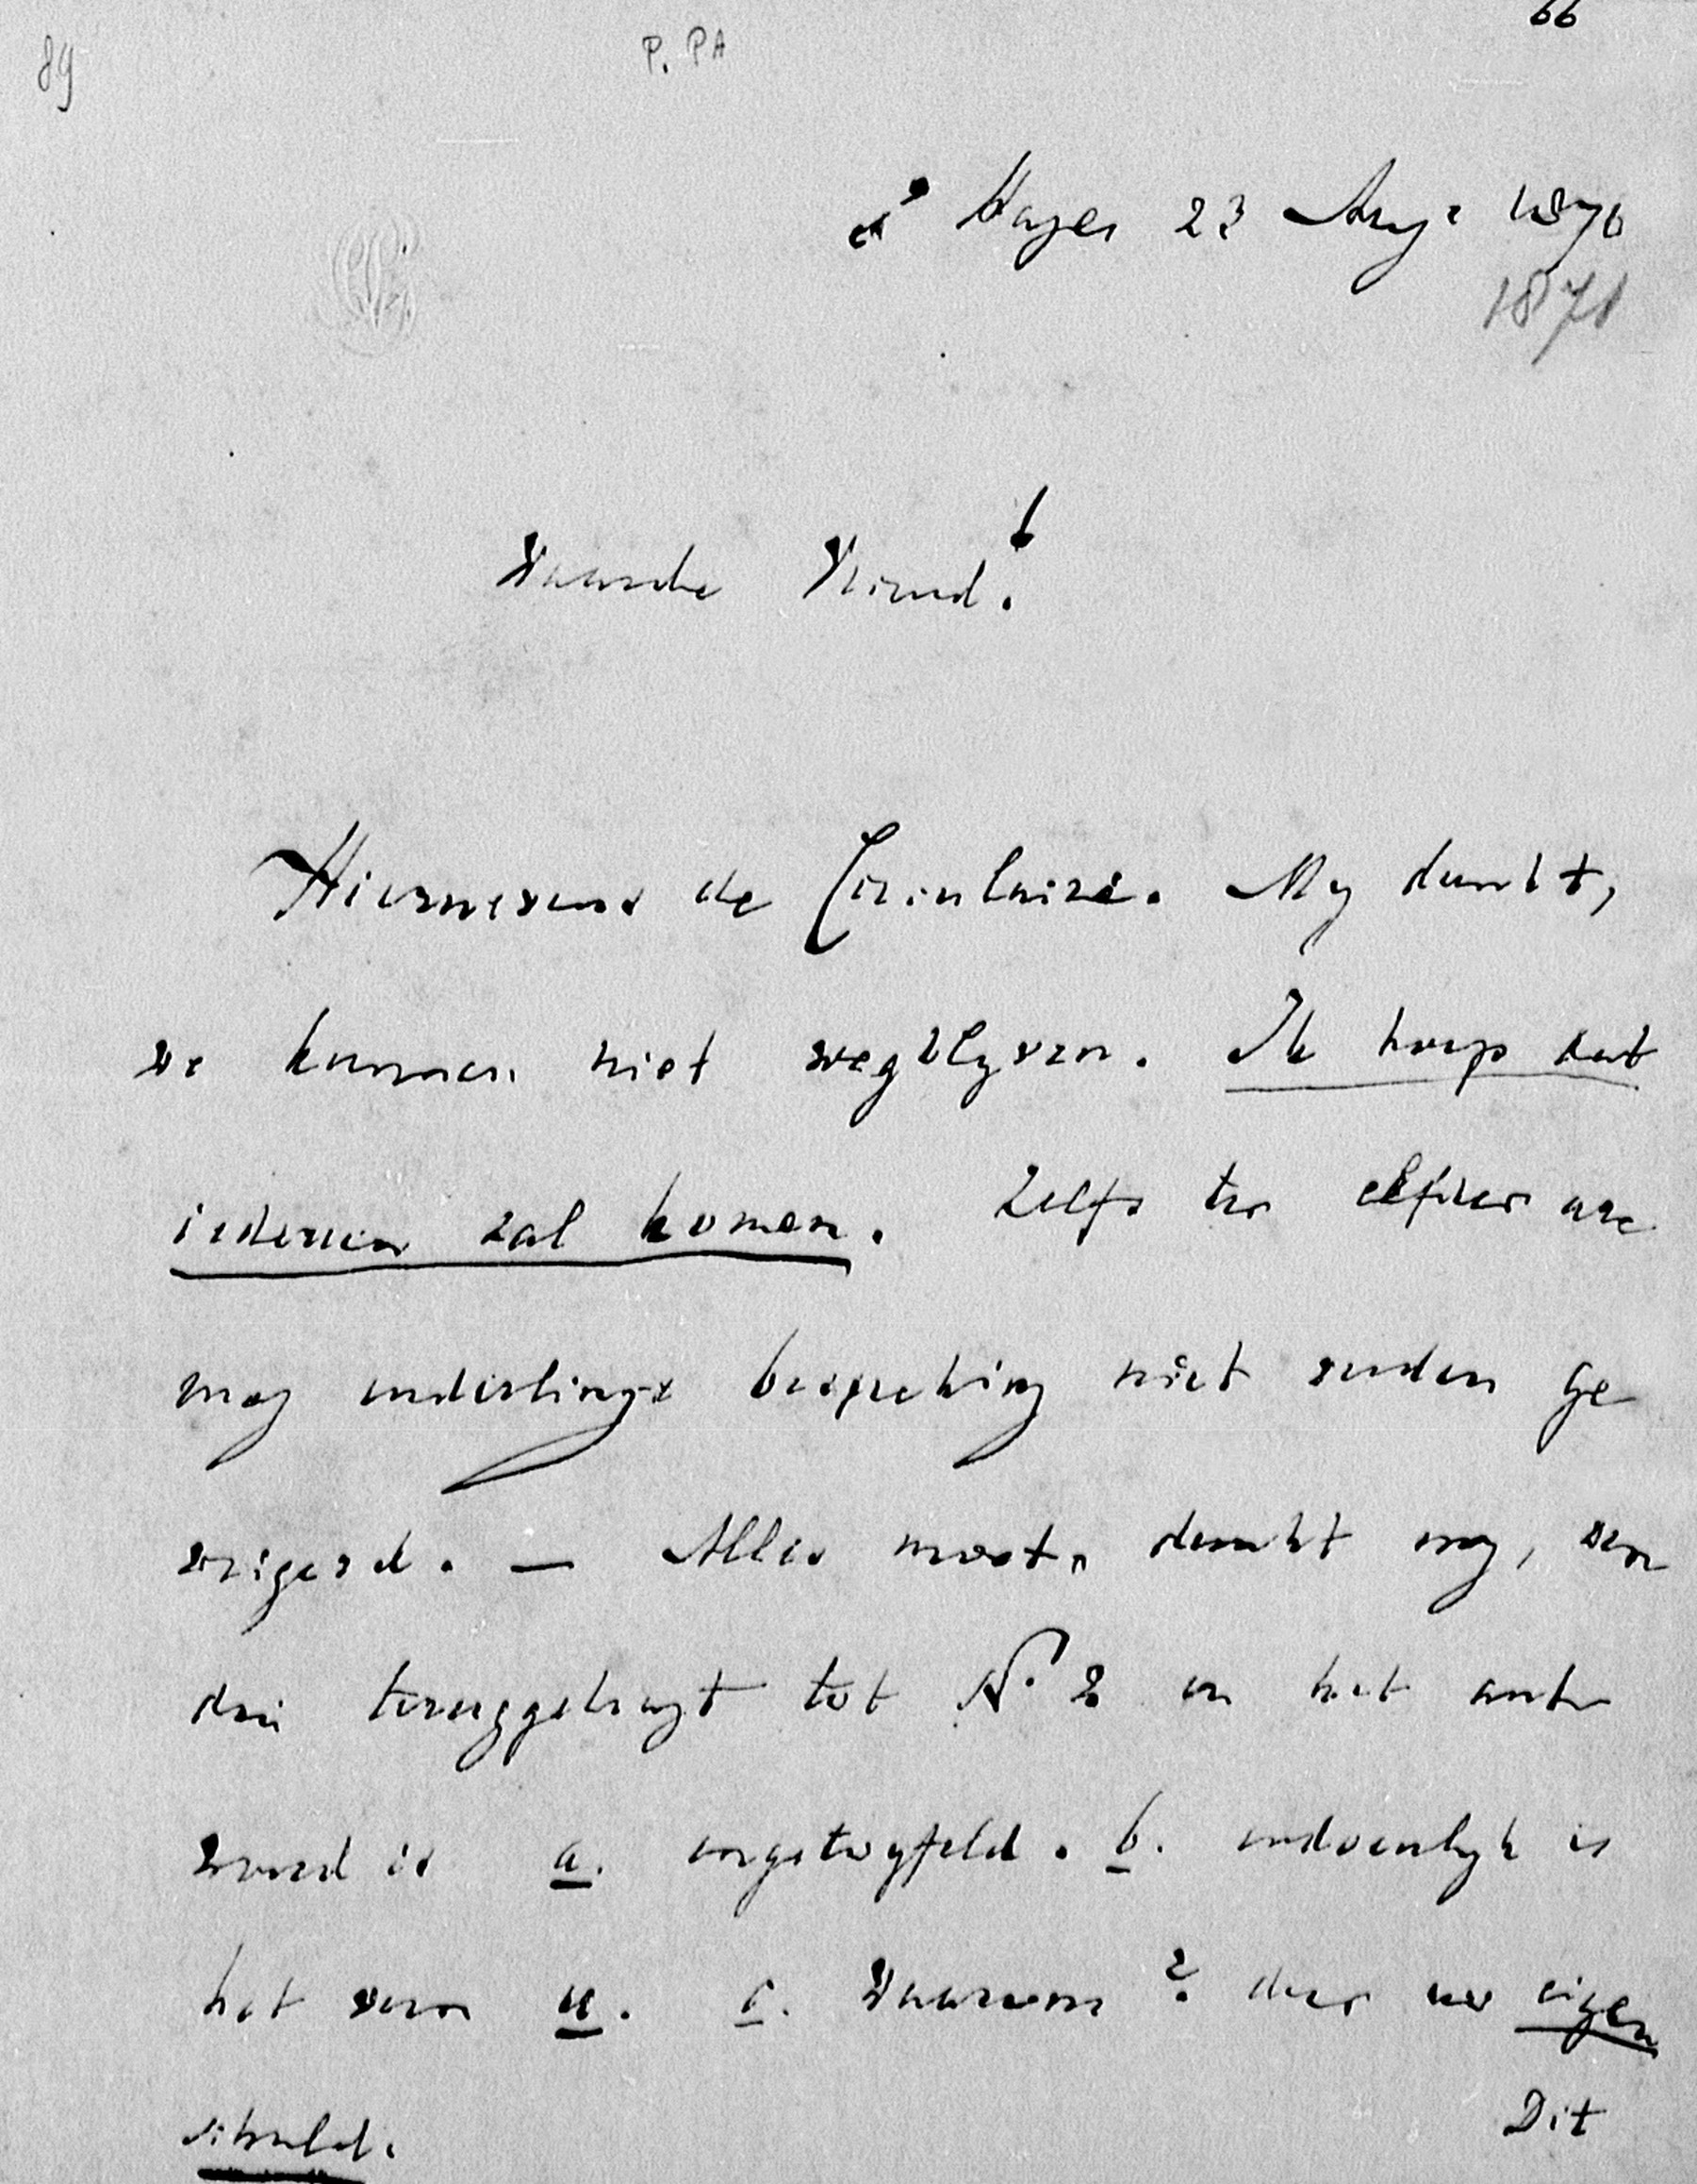 66
89
P. PA
's Hage, 23 Aug. 1870
1871
Waarde Vriend!
Hiernevens de Circulaire. My dunkt,
we kunnen niet wegblyven. Ik hoop dat
iedereen zal komen. Zelfs ter elfder ure
mag onderlinge bespreking niet worden ge
weigerd. — Alles moet, dunkt my, wor
den teruggebragt tot No. 2 en het ant
woord is a. ongetwyfeld. b. ondoenlyk is
het voor u. c. Waarom? door uw eigen
schuld.
Dit